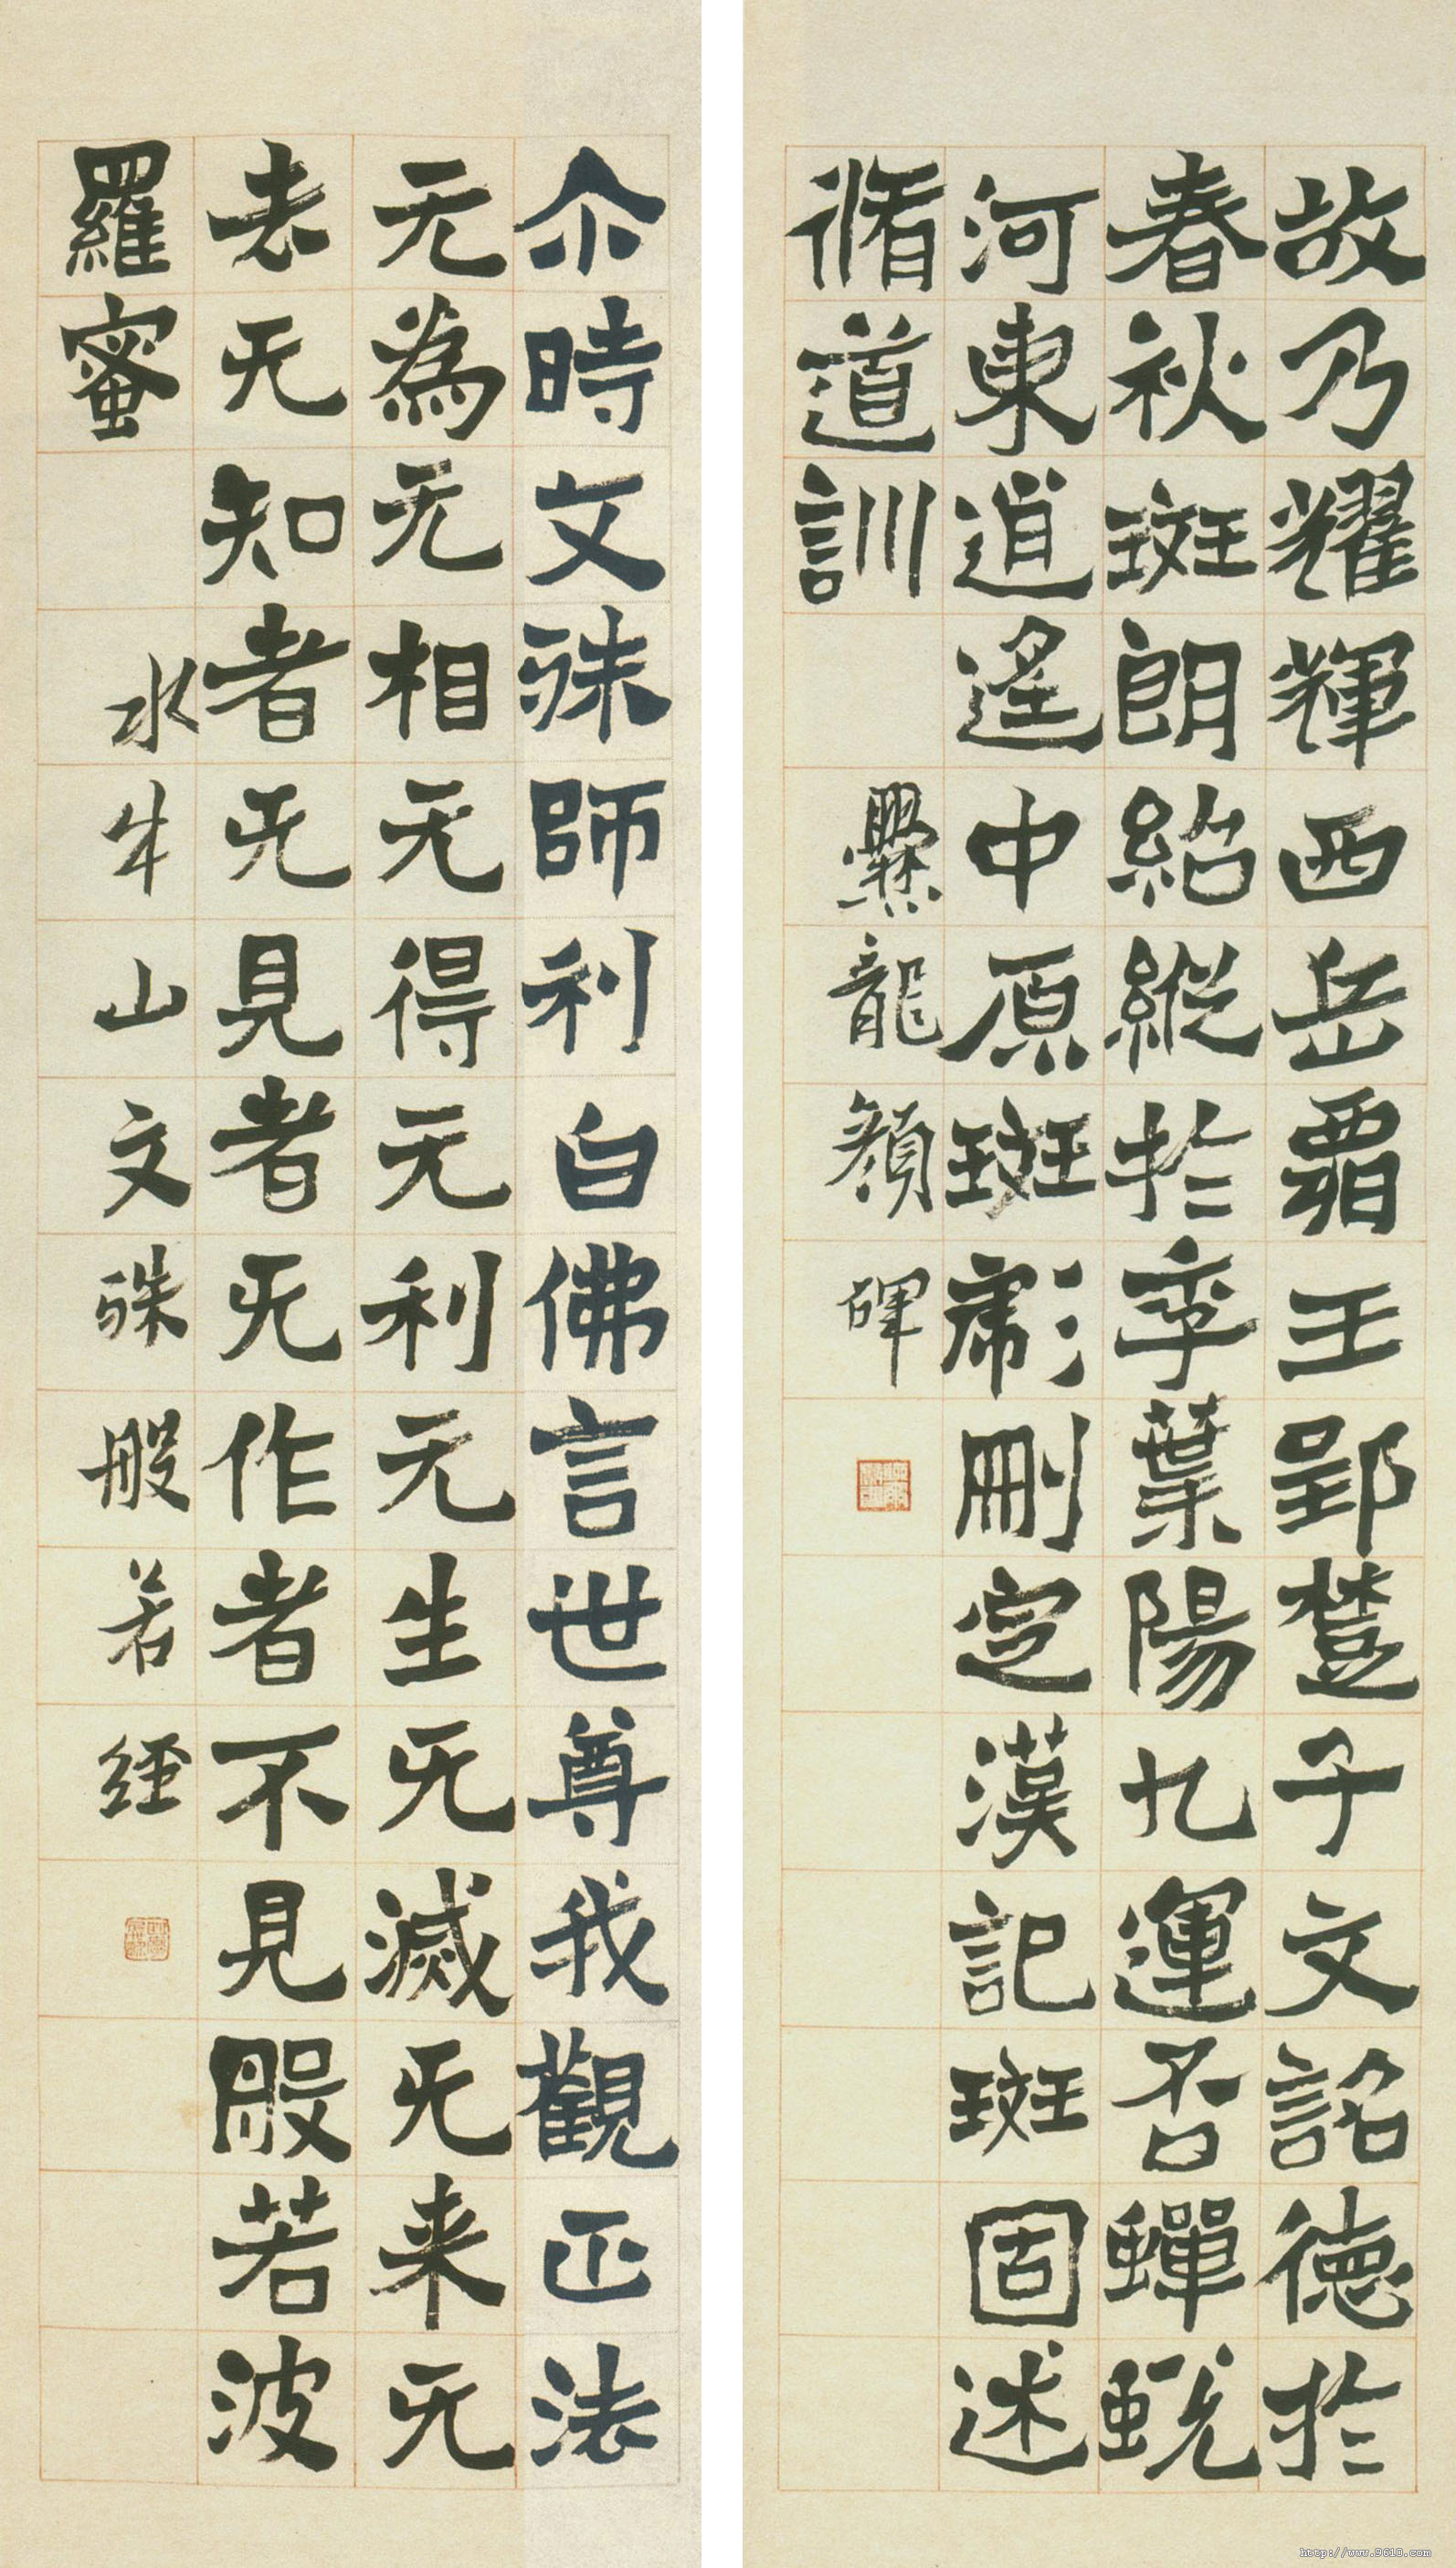 故乃耀輝西岳霸王郢楚子文詺德於
春秋斑朗紹縱於季葉陽九運否蟬蛻
河東逍遙中原斑彪刪定漢記斑固述
脩道訓
爨龍顏碑
尒時文殊師利白佛言世尊我觀正法
无為无相无得无利无生无滅无来无
去无知者无見者无作者不見般若波
羅蜜
水牛山文殊般若经
http://www.9610.com